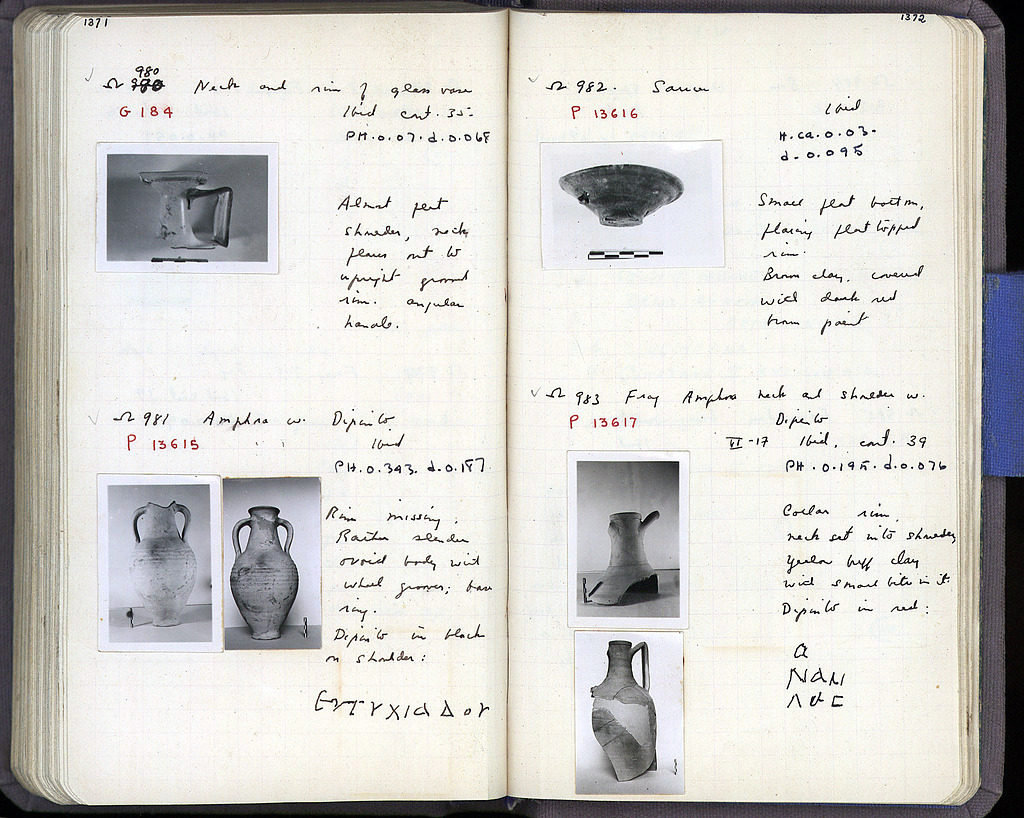 1371
980
Ω 970 Neck and rim of glass vase
G 184
Ibid cont. 35
PH. 0.07. d. 0.068
Almost pert
shoulder, neck
flares out to
upright ground
rim. angular
handle.
Ω 981 Amphra w. Dipinto
P 13615
Ibid
PH. 0.343. d. 0.187
Rim missing.
Rather slender
ovoid body with
wheel grooves; base
ring.
Dipinto in black
on shoulder:
ΕΥΤΥΧΙΑΔΟΥ
1372
Ω 982. Saucer
P 13616
Ibid
H. ca. 0.03.
d. 0.095
Small flat bottom,
flaring flat topped
rim.
Brown clay, covered
with dark red
brown paint
Ω 983 Frag Amphora neck and shoulder w.
P 13617
Dipinto
VI-17 Ibid, cont. 39
PH. 0.195. d. 0.076
Collar rim,
neck set into shoulder,
yellow buff clay
with small bits in it.
Dipinto in red: